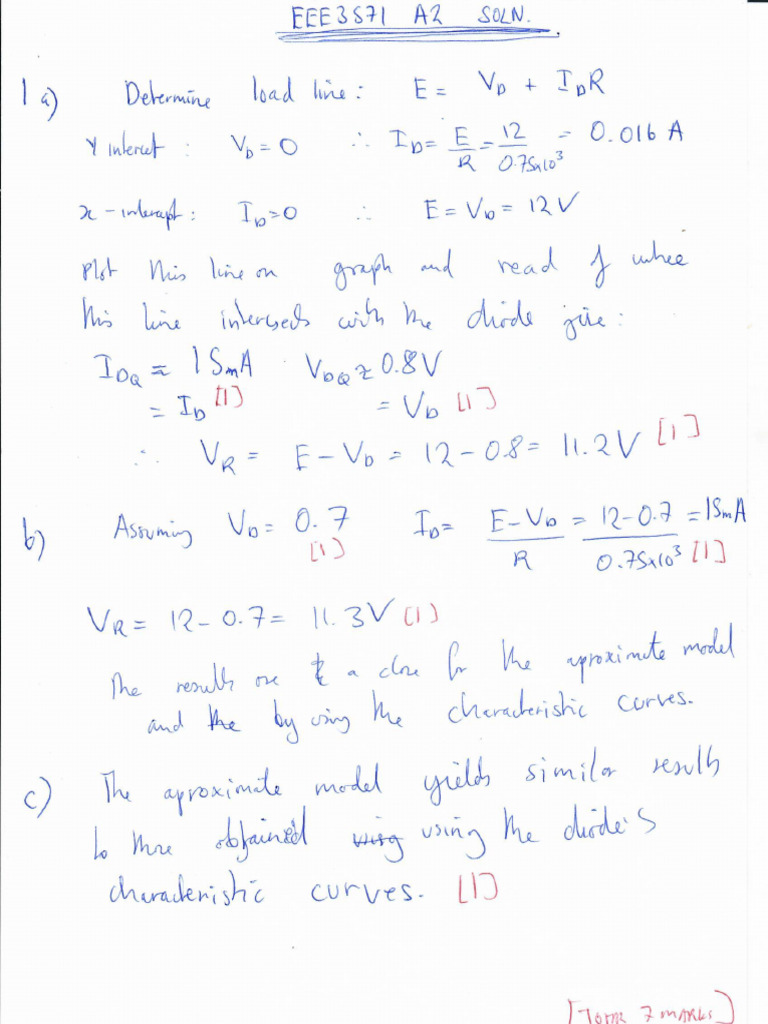 EEE3571 A2 SOLN.
1a) Determine load line: E = V_D + I_D R
Y intercet: V_D = 0 ∴ I_D = E/R = 12/0.75x10³ = 0.016 A
x-intercept: I_D = 0 ∴ E = V_D = 12V
Plot this line on graph and read of where
this line intersects with the diode give:
I_DQ ≈ 15mA V_DQ ≈ 0.8V
= I_D [1] = V_D [1]
∴ V_R = E - V_D = 12 - 0.8 = 11.2V [1]
b) Assuming V_D = 0.7 [1] I_D = E - V_D / R = 12 - 0.7 / 0.75x10³ = 15mA [1]
V_R = 12 - 0.7 = 11.3V [1]
The results are a close for the aproximate model
and the by using the characteristic curves.
c) The aproximate model yields similar results
to those obtained using using the diode's
characteristic curves. [1]
[TOTAL 7 MARKS]